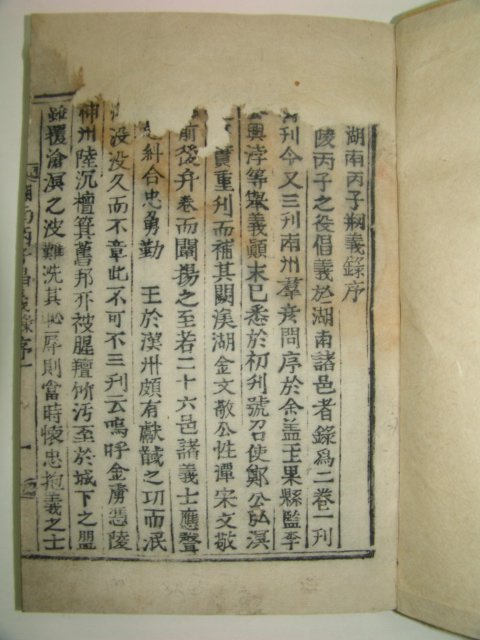 湖南丙子刱義錄序
陵丙子之役倡義於湖南諸邑者錄爲二卷一刊
刊今又三刊南州羣彦問序於余盖玉果縣監李
興浡等舉義顚末已悉於初刊號召使鄭公弘溟
重刊而補其闕渼湖金文敬公性潭宋文敬
前後弁卷而闡揚之至若二十六邑諸義士應聲
糾合忠勇勤 王於漢州頗有獻馘之功而泯
没没久而不章此不可不三刊云嗚呼金虜憑陵
神州陸沉檀箕舊邦亦被腥羶所汚至於城下之盟
雖覆滄溟之波難洗其恥辱則當時懷忠抱義之士
湖南丙子倡義錄序 一